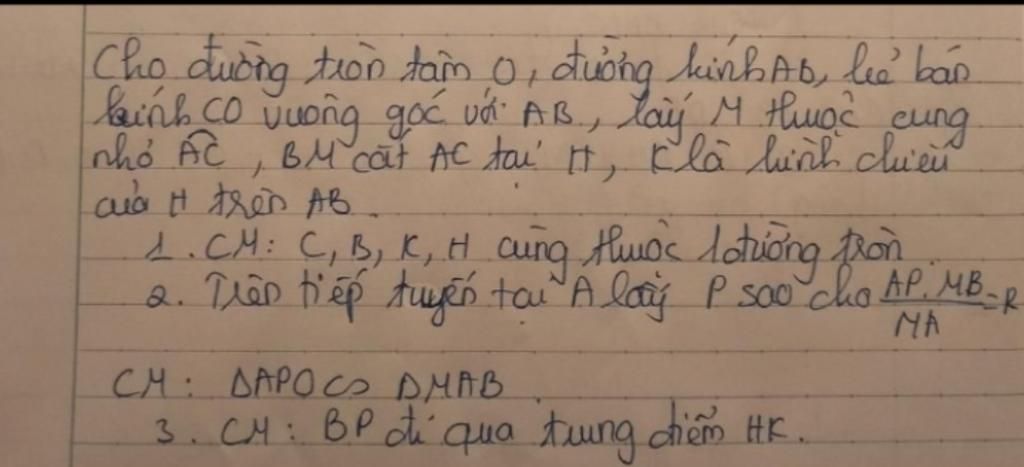 Cho đường tròn tâm O, đường kính AB, kẻ bán
kính CO vuông góc với AB, lấy M thuộc cung
nhỏ AC, BM cắt AC tại H, K là hình chiếu
của H trên AB.
1. CM: C, B, K, H cùng thuộc 1 đường tròn.
2. Trên tiếp tuyến tại A lấy P sao cho AP. MB / MA = R
CM: ΔAPO ∽ ΔMAB.
3. CM: BP đi qua trung điểm HK.